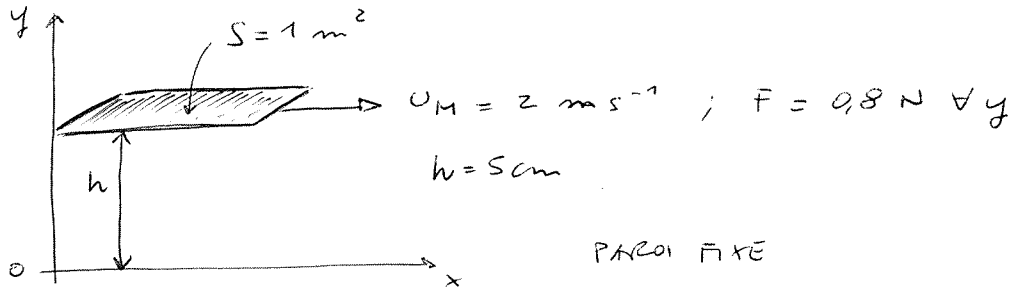 y
S = 1 m²
U_M = 2 m s⁻¹ ; F = 0,8 N ∀ y
h
h = 5 cm
PAROI FIXE
0
x